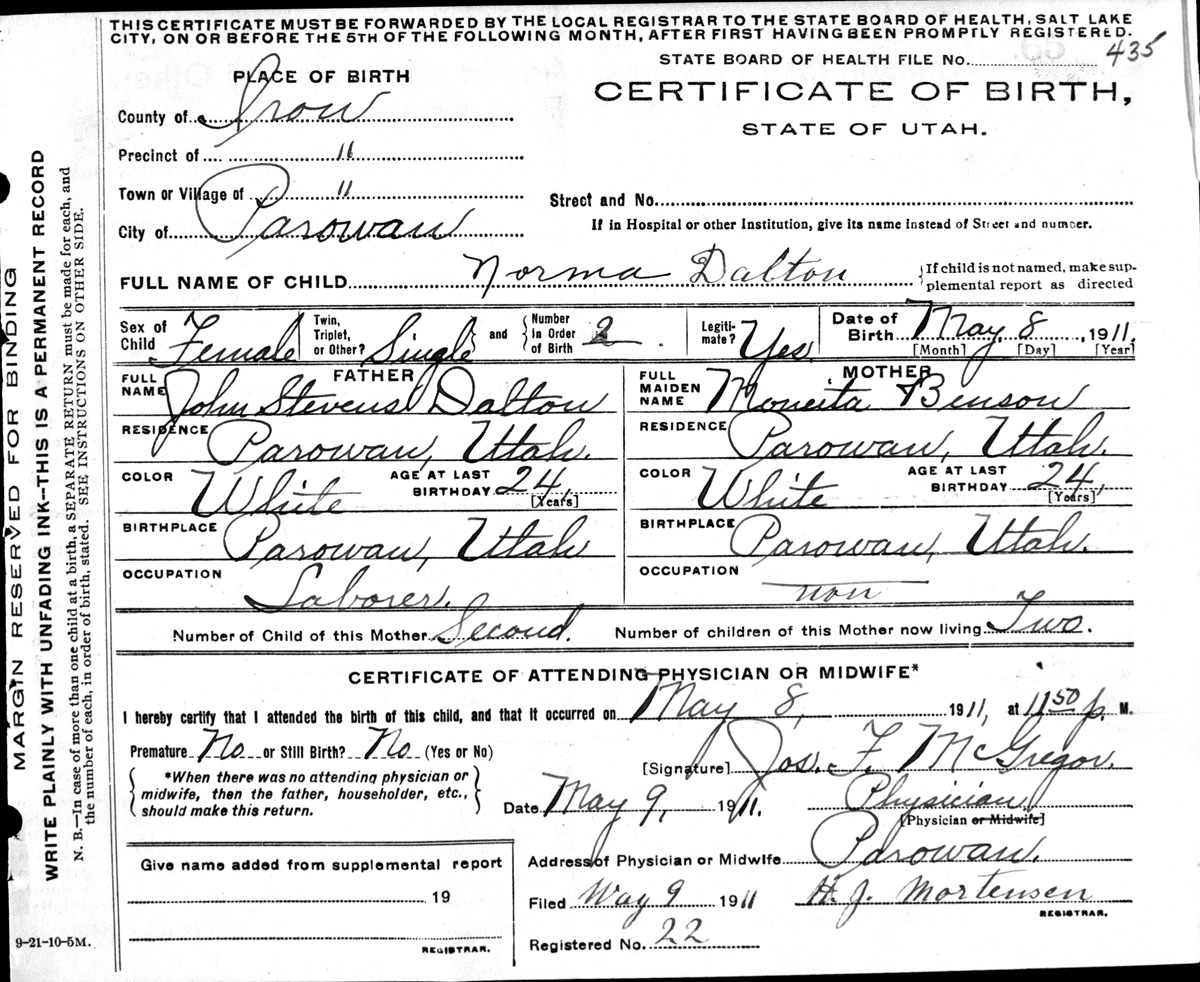 THIS CERTIFICATE MUST BE FORWARDED BY THE LOCAL REGISTRAR TO THE STATE BOARD OF HEALTH, SALT LAKE
CITY, ON OR BEFORE THE 5TH OF THE FOLLOWING MONTH, AFTER FIRST HAVING BEEN PROMPTLY REGISTERED.
STATE BOARD OF HEALTH FILE No. 435
PLACE OF BIRTH
CERTIFICATE OF BIRTH,
STATE OF UTAH.
County of Iron
Precinct of "
Town or Village of "
City of Parowan
Street and No.
If in Hospital or other Institution, give its name instead of Street and number.
FULL NAME OF CHILD Norma Dalton
{If child is not named, make sup-
plemental report as directed
Sex of Child Female
Twin, Triplet, or Other? Single } and { Number in Order of Birth 2
Legiti-mate? Yes
Date of Birth May 8, 1911.
[Month] [Day] [Year]
FATHER
FULL NAME John Stevens Dalton
RESIDENCE Parowan, Utah.
COLOR White AGE AT LAST BIRTHDAY 24, [Years]
BIRTHPLACE Parowan, Utah
OCCUPATION Laborer.
MOTHER
FULL MAIDEN NAME Moneita Benson
RESIDENCE Parowan, Utah.
COLOR White AGE AT LAST BIRTHDAY 24, [Years]
BIRTHPLACE Parowan, Utah.
OCCUPATION non
Number of Child of this Mother Second. Number of children of this Mother now living Two.
CERTIFICATE OF ATTENDING PHYSICIAN OR MIDWIFE*
I hereby certify that I attended the birth of this child, and that it occurred on May 8, 1911, at 11 50 p. M.
Premature No or Still Birth? No (Yes or No)
{ *When there was no attending physician or
midwife, then the father, householder, etc.,
should make this return. }
[Signature] Jos. F. McGregor.
Date May 9, 1911. Physician
[Physician or Midwife]
Address of Physician or Midwife Parowan.
Give name added from supplemental report
19
REGISTRAR.
Filed May 9 1911 H. J. Mortensen
REGISTRAR.
Registered No. 22
9-21-10-5M.
MARGIN RESERVED FOR BINDING
WRITE PLAINLY WITH UNFADING INK--THIS IS A PERMANENT RECORD
N. B.—In case of more than one child at a birth, a SEPARATE RETURN must be made for each, and
the number of each, in order of birth, stated. SEE INSTRUCTIONS ON OTHER SIDE.